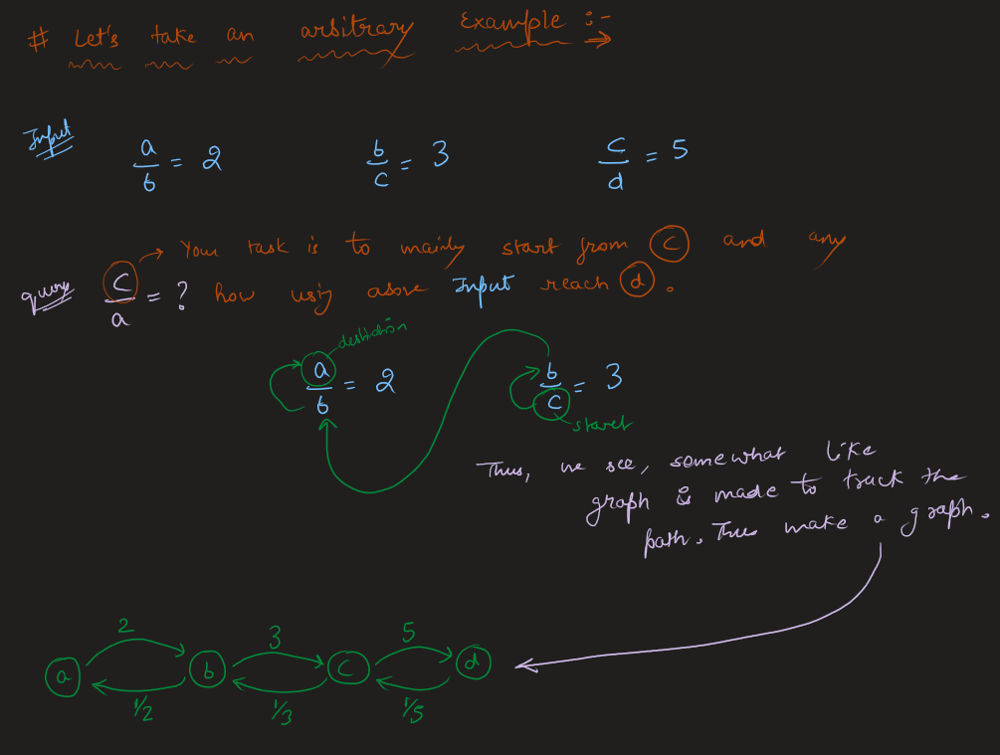 # Let's take an arbitrary Example :-
Input a/b = 2 b/c = 3 c/d = 5
→ Your task is to mainly start from c and any
query c/a = ? how using above Input reach d.
destination
a/b = 2 b/c = 3
start
Thus, we see, somewhat like
graph is made to track the
path. Thus make a graph.
2 3 5
a b c d
1/2 1/3 1/5